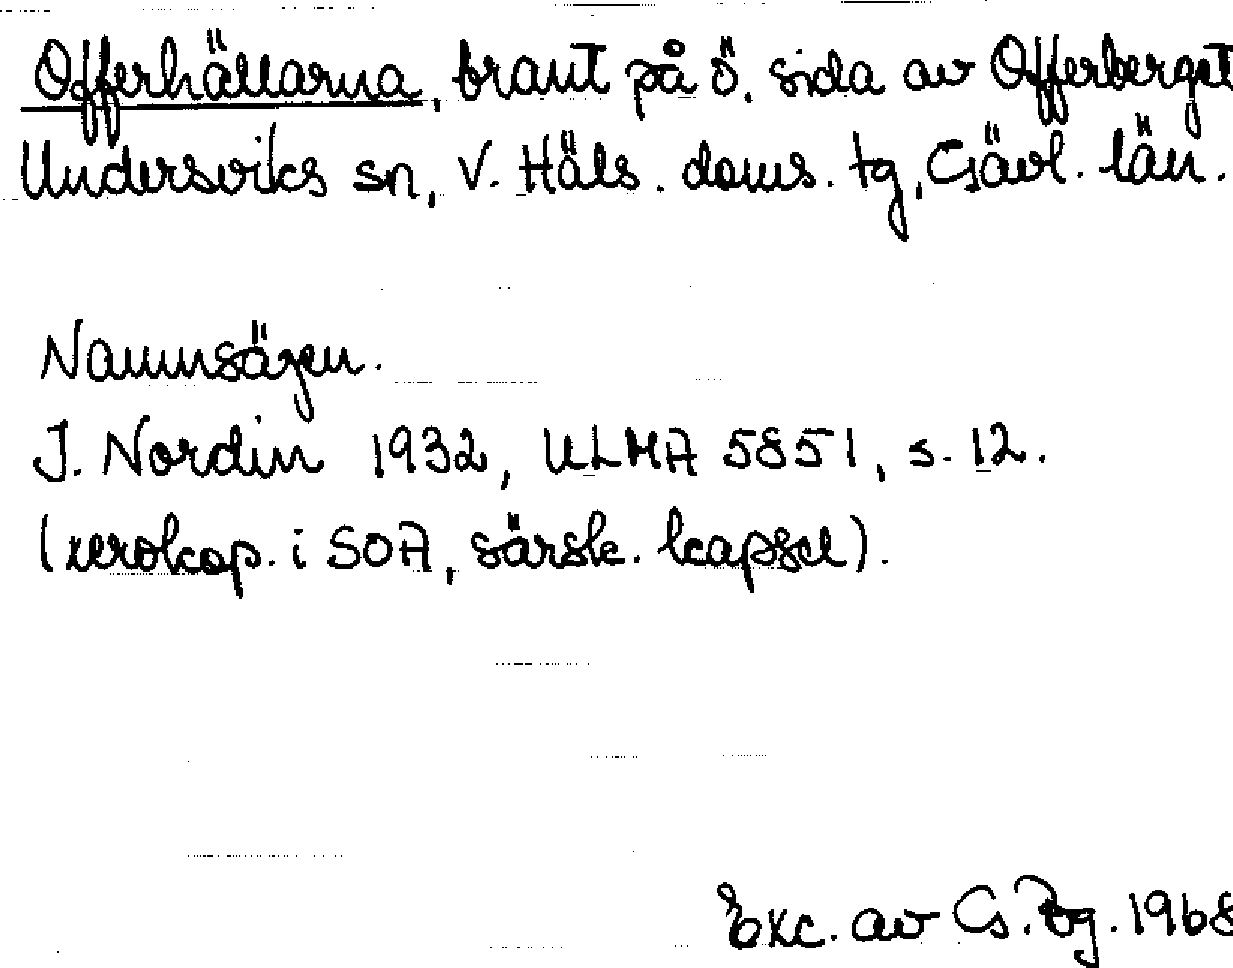 Offerhällarna, brant på ö. sida av Offerberget
Undersviks sn, V. Häls. doms. tg, Gävl. län.
Namnsägen.
J. Nordin 1932, ULMA 5851, s. 12.
(xerokop. i SOA, särsk. kapsel).
Exc. av G. Bg. 1968